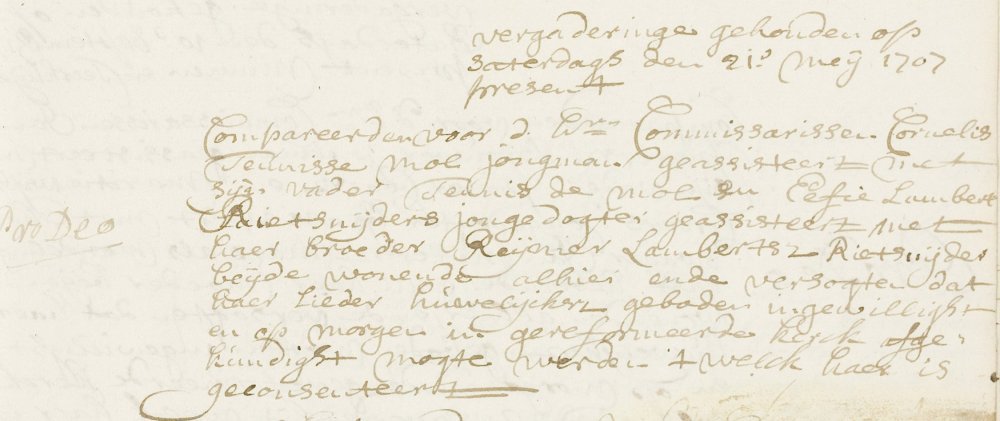 vergaderinge gehouden op
saterdagh den 21s meij 1707
present
Compareerden voor d. Hrn Commissarissen Cornelis
Teunisse mol jongman geassisteert met
sijn vader Teunis de mol en Eefie Lambert
Rietsnijders jongedogter geassisteert met
Pro Deo
haer broeder Reijnier Lambertsz Rietsnijder
beijde wonende alhier ende versogten dat
haer lieder huwelijckse geboden ingewillight
en op morgen in gereformeerde kerck afge-
kundight mogte werden 't welck haer is
geconsenteert